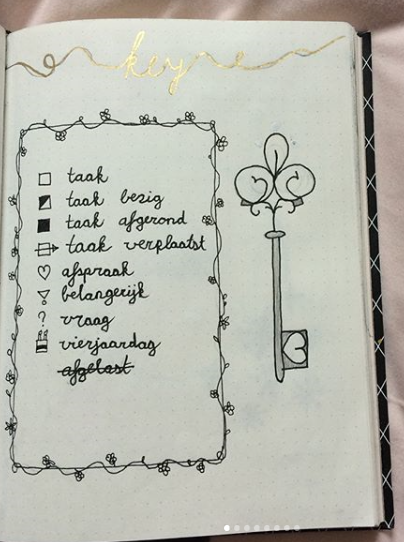 key
taak
taak bezig
taak afgerond
taak verplaatst
afspraak
belangerijk
? vraag
vierjaardag
afgelast